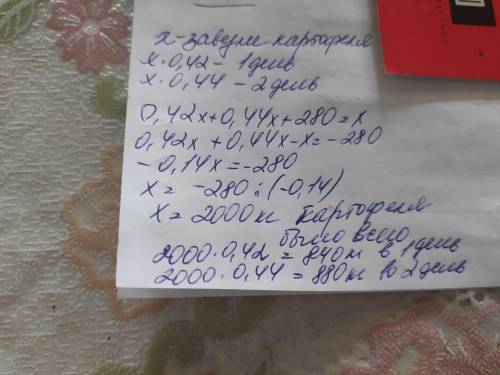 x - завезли картофеля
x·0,42 - 1 день
x·0,44 - 2 день
0,42x+0,44x+280=x
0,42x+0,44x-x=-280
-0,14x=-280
x= -280:(-0,14)
x=2000кг картофеля
было всего
2000·0,42=840кг в 1 день
2000·0,44=880кг во 2 день